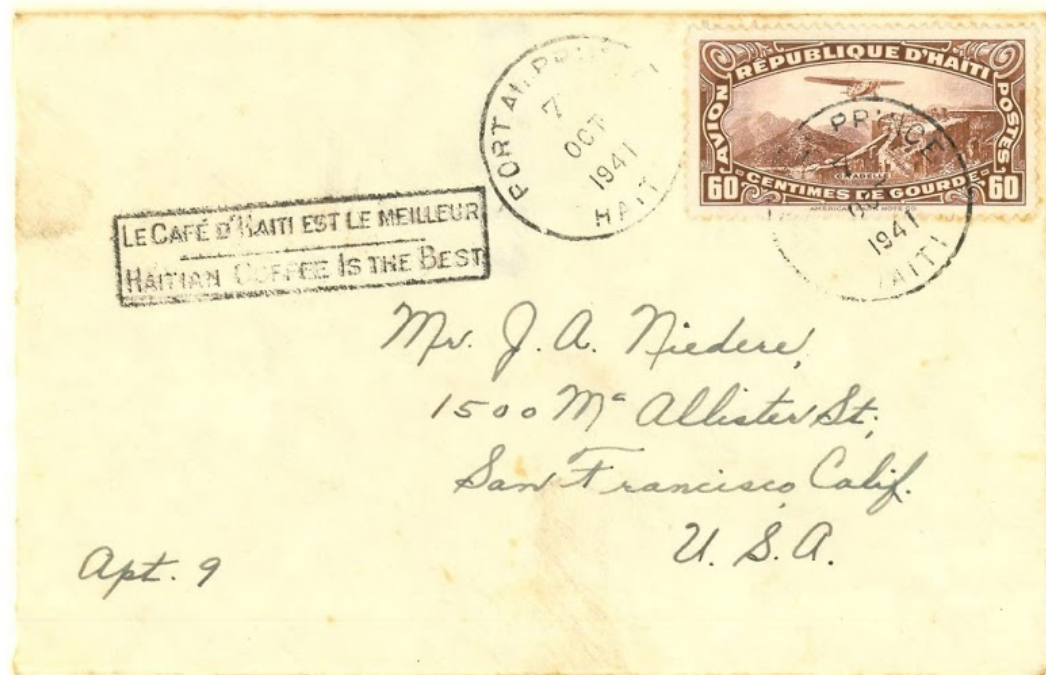 PORT AU PRINCE
7
OCT
1941
HAITI
RÉPUBLIQUE D'HAITI
AVION
POSTES
CITADELLE
60 CENTIMES DE GOURDE 60
AMERICAN BANK NOTE CO.
PRINCE
1941
HAITI
LE CAFÉ D'HAITI EST LE MEILLEUR
HAITIAN COFFEE IS THE BEST
Mr. J. A. Niedere,
1500 Mc Allister St.,
San Francisco, Calif.
U. S. A.
Apt. 9